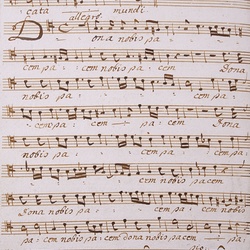 cata mundi
allegro
Dona nobis pa
cem pa cem pa cem Dona
nobis pa
cem pa cem pa cem
nobis pa cem
cem nobis pacem
Dona nobis pa cem pa
pa cem pacem dona nobis pa cem